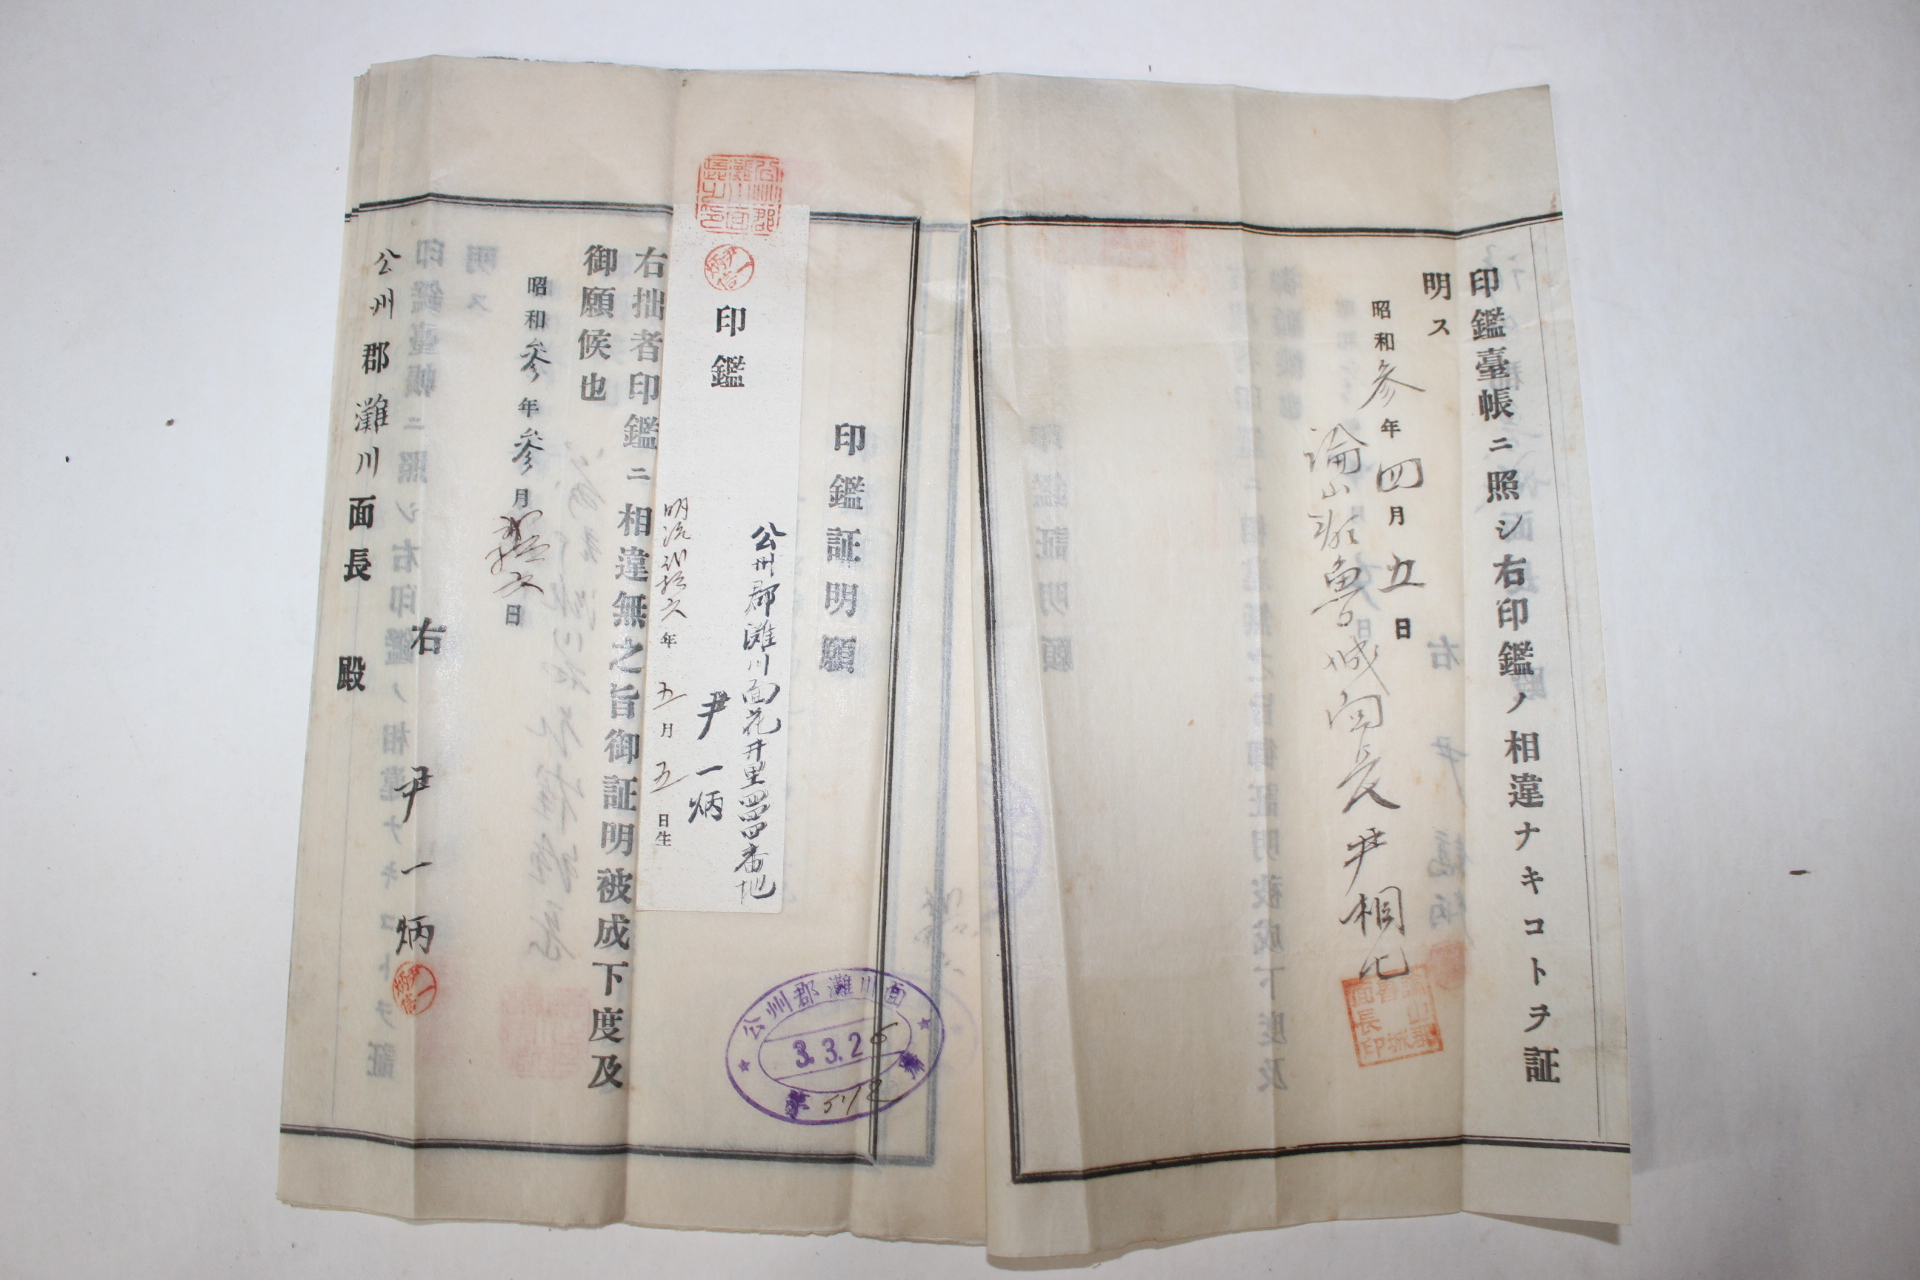 印鑑臺帳ニ照シ右印鑑ノ相違ナキコトヲ証
明ス
昭和参年四月五日
論山郡魯城面長尹相
論山郡
魯城
面長印
印鑑証明願
公州郡灘川面
3.3.26
第
公州郡
灘川面
長之印
印鑑
公州郡灘川面花井里四四四番地
尹一炳
明治弐拾六年五月五日生
右拙者印鑑ニ相違無之旨御証明被成下度及
御願候也
昭和参年参月弐拾六日
右 尹一炳
公州郡灘川面長 殿